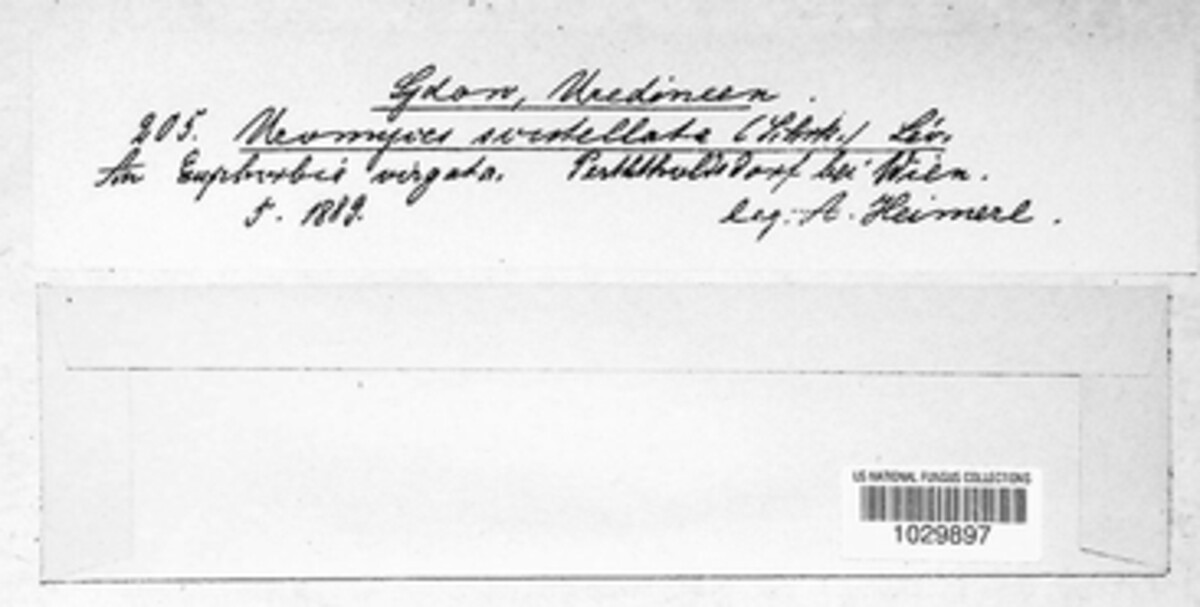 Sydow, Uredineen.
205. Uromyces scutellatus (Schrk.) Lév.
An Euphorbia virgata. Perchtholdsdorf bei Wien.
5. 1889. leg. A. Heimerl.
US NATIONAL FUNGUS COLLECTIONS
1029897